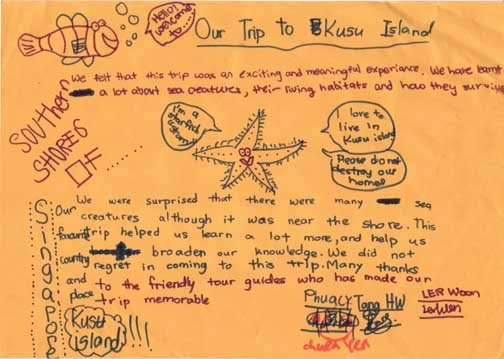 Hello! welcome to....
Our Trip to Kusu Island
We felt that this trip was an exciting and meaningful experience. We have learnt
a lot about sea creatures, their living habitats and how they survive
SOUTHERN
SHORES
OF.......
I'm a starfish
I love to
live in
Kusu island
Please do not
destroy our
homes
We were surprised that there were many sea
creatures although it was near the shore. This
trip helped us learn a lot more, and help us
broaden our knowledge. We did not
regret in coming to this trip. Many thanks
to the friendly tour guides who has made our
trip memorable
Singapore
Our
favourite
country
and
place
Kusu
Island!!!
Tang HW
LER Woon